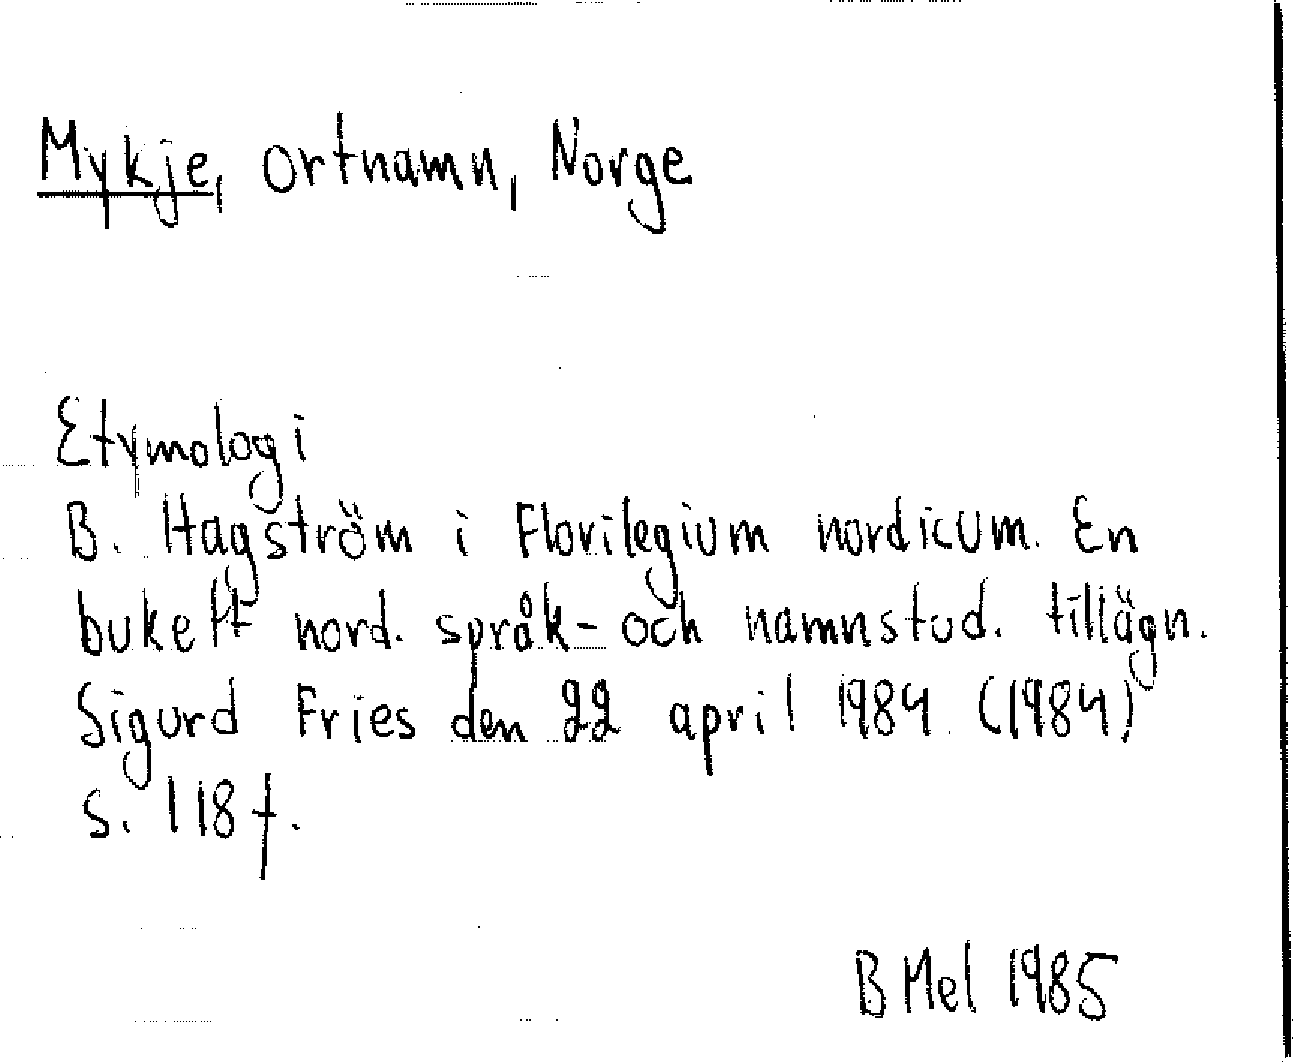 Mykje, ortnamn, Norge
Etymologi
B. Hagström i Florilegium nordicum. En
bukett nord. språk- och namnstud. tillägn.
Sigurd Fries den 22 april 1984 (1984)
s. 118 f.
B Mel 1985